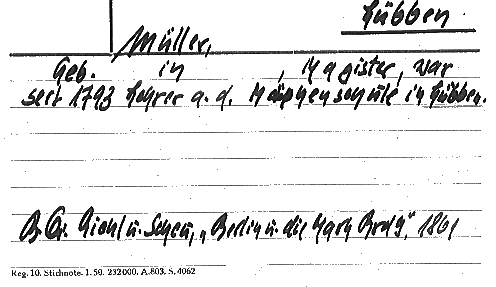 Lübben
Müller,
Geb. in , Magister, war
seit 1793 Lehrer a. d. Mädchenschule in Lübben.
B. Gr. u. Scheu, „Berlin u. die Mark Brdbg", 1861
Reg. 10. Stichnote. 1. 50. 232000. A.803. S. 4062